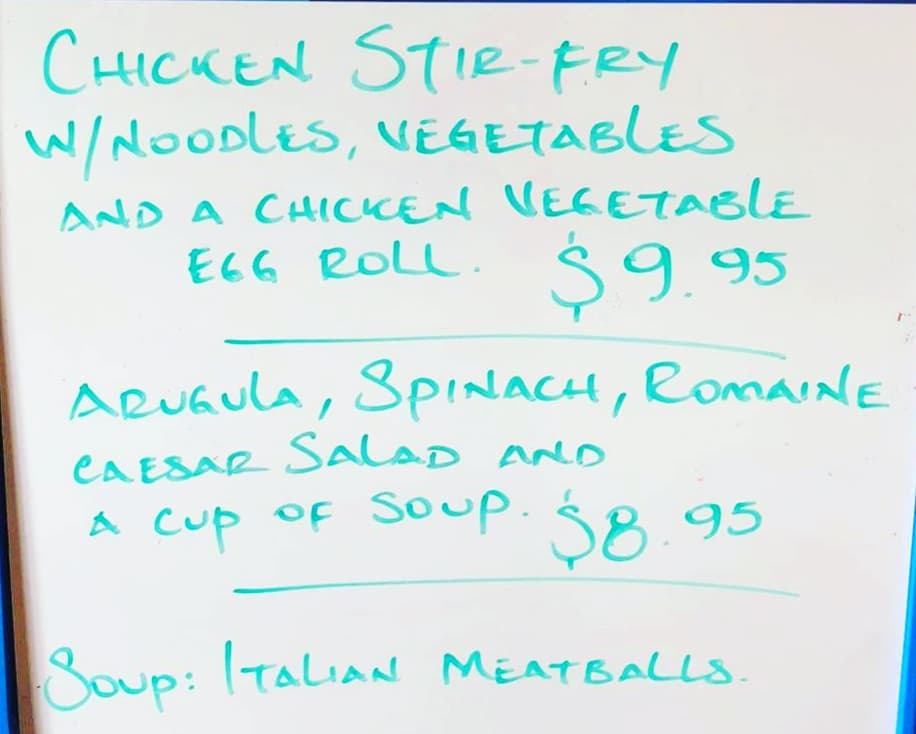 CHICKEN STIR-FRY
W/NOODLES, VEGETABLES
AND A CHICKEN VEGETABLE
EGG ROLL. $9.95
ARUGULA, SPINACH, ROMAINE
CAESAR SALAD AND
A CUP OF SOUP. $8.95
SOUP: ITALIAN MEATBALLS.